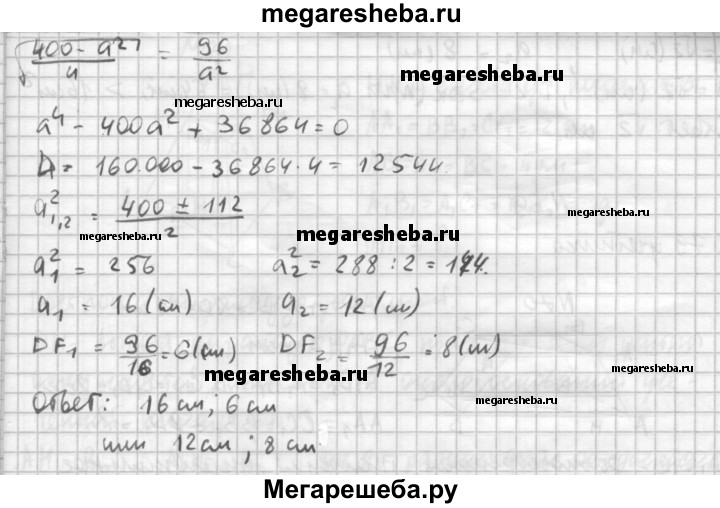 megaresheba.ru
√(400 - a²)/4 = 96/a²
megaresheba.ru
megaresheba.ru
a⁴ - 400a² + 36864 = 0
D = 160.000 - 36864·4 = 12544.
a²₁,₂ = (400 ± 112)/2
megaresheba.ru
megaresheba.ru
megaresheba.ru
a₁² = 256 a₂² = 288 : 2 = 144.
a₁ = 16 (см) a₂ = 12 (см)
DF₁ = 96/16 = 6 (см) DF₂ = 96/12 = 8 (см)
megaresheba.ru
megaresheba.ru
Ответ: 16 см; 6 см
megaresheba.ru
или 12 см; 8 см.
Мегарешеба.ру